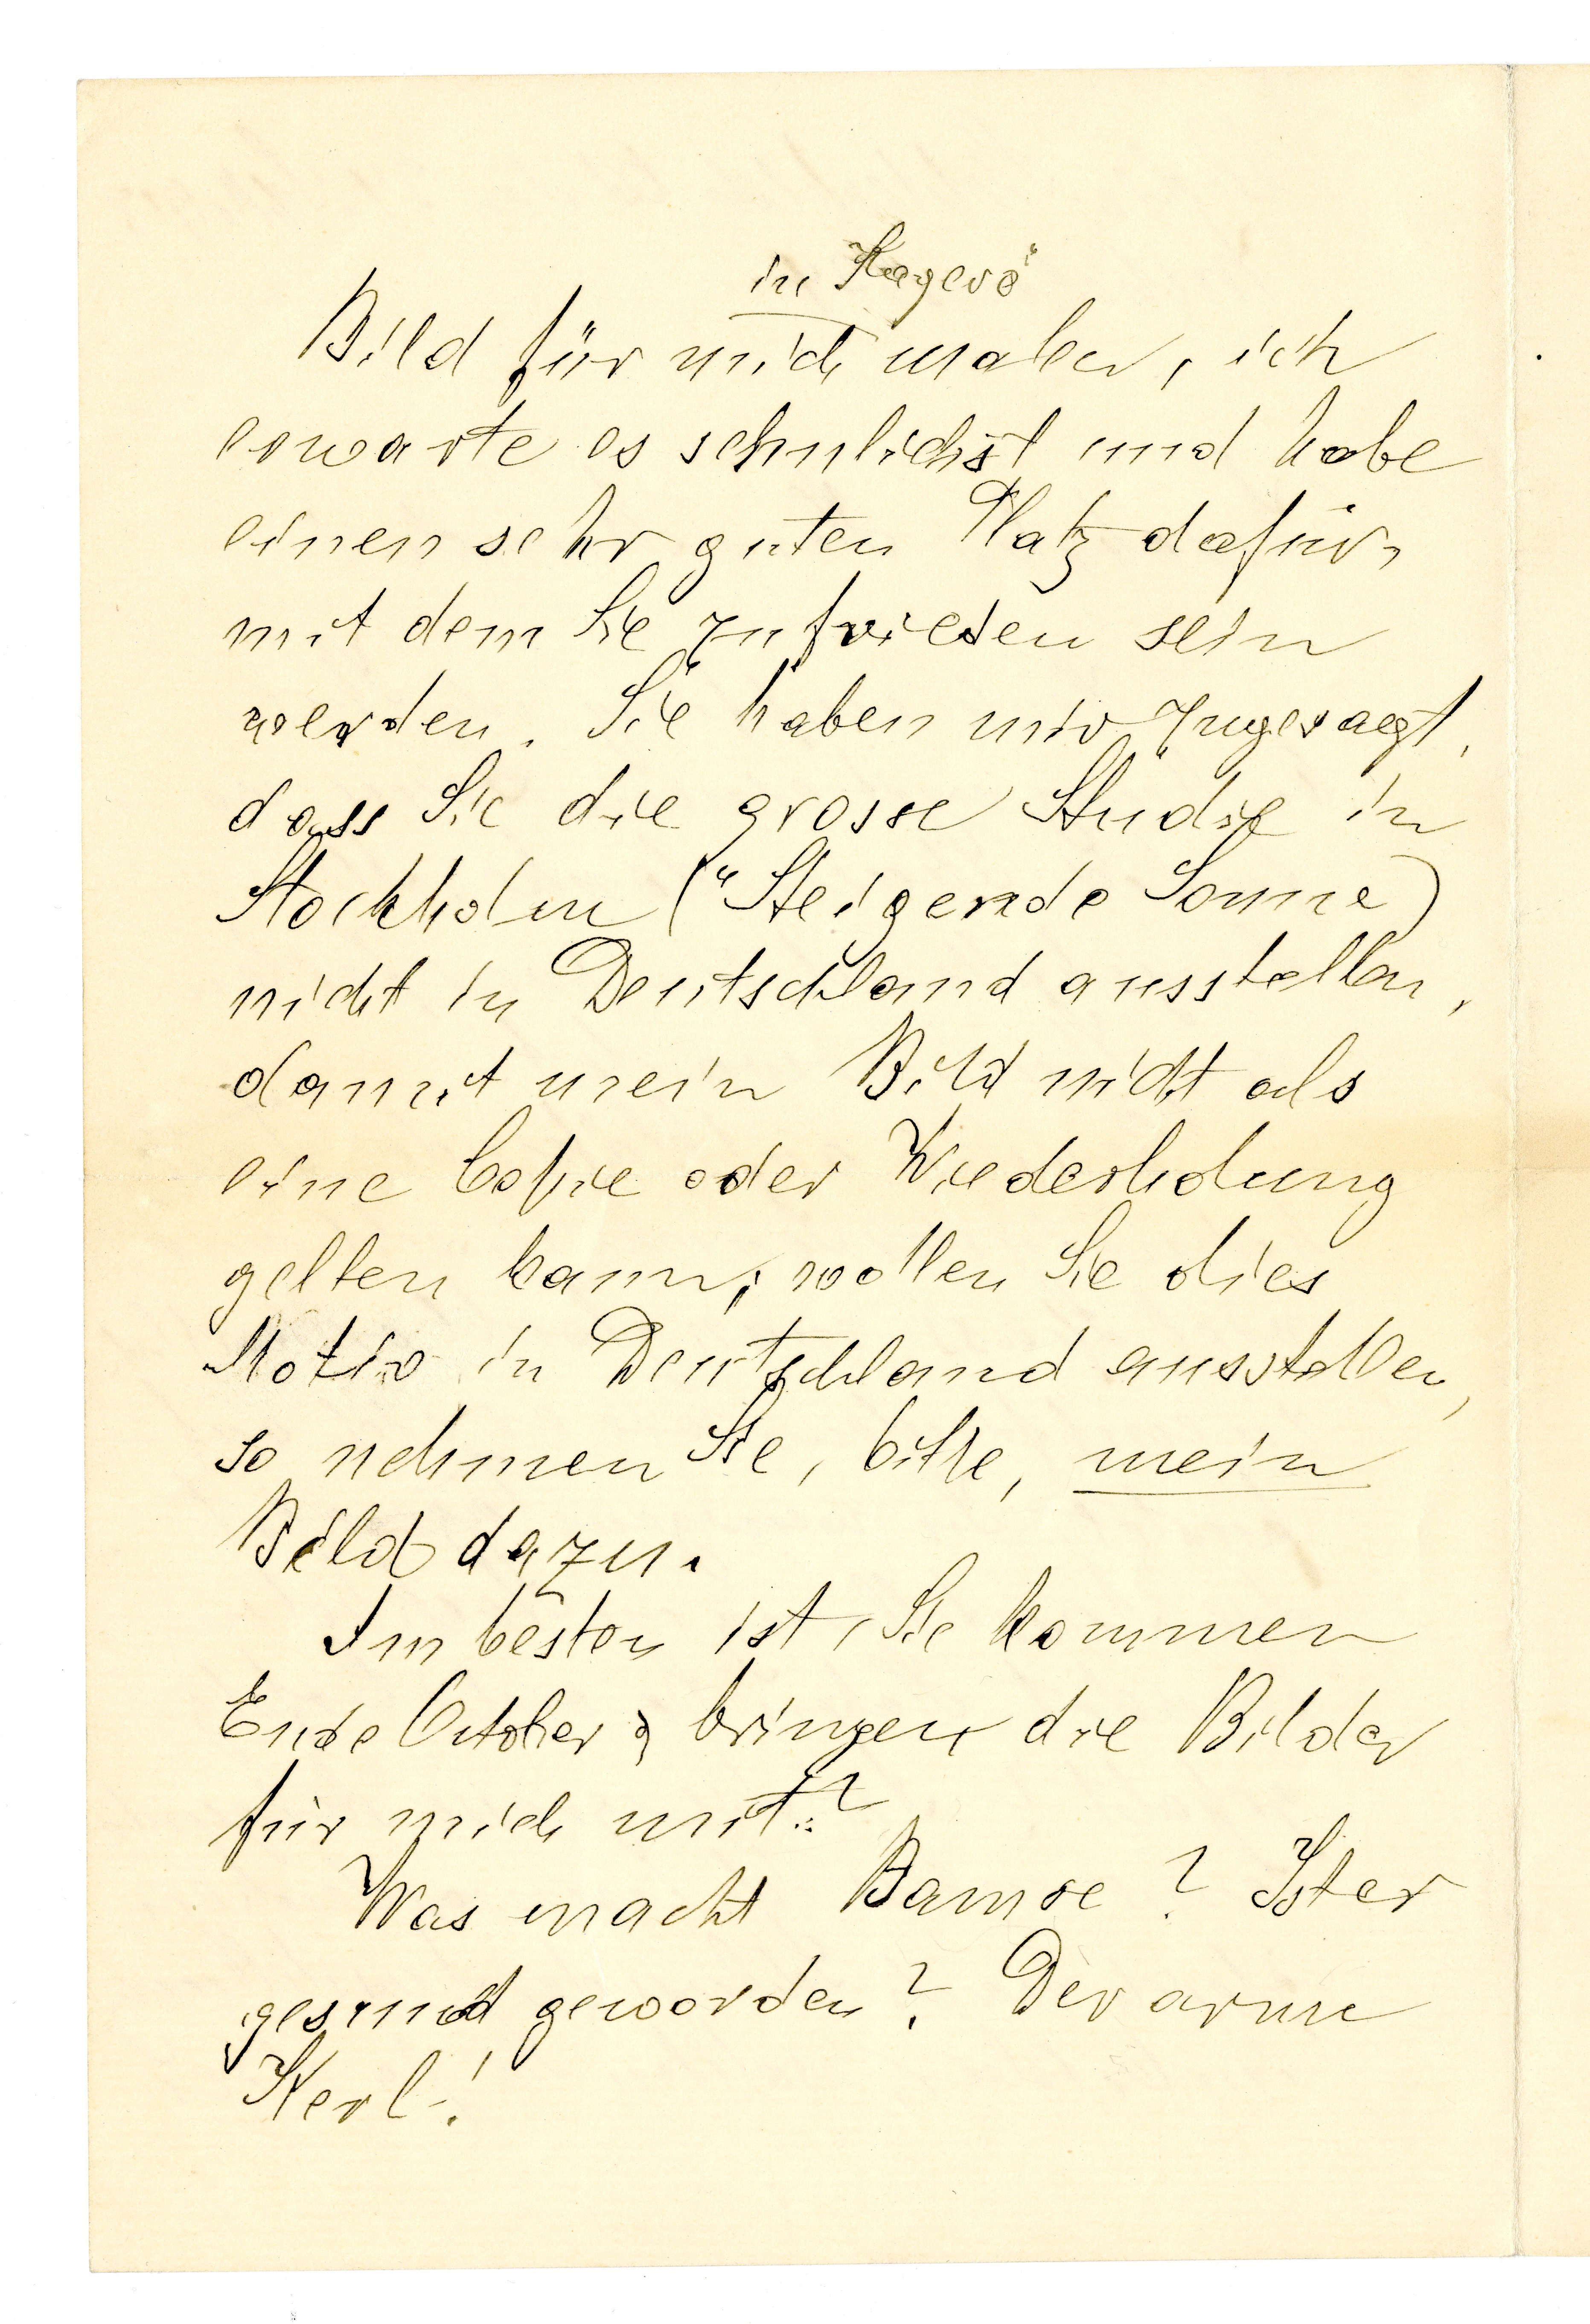 in Kragerö
Bild für mich malen, ich
erwarte es sehnlichst und habe
einen sehr guten Platz dafür,
mit dem Sie zufrieden sein
werden. Sie haben mir zugesagt,
dass Sie die grosse Studie in
Stockholm ("Steigende Sonne)
nicht in Deutschland ausstellen,
damit mein Bild nicht als
eine Copie oder Wiederholung
gelten kann; wollen Sie dies
Motiv in Deutschland ausstellen,
so nehmen Sie, bitte, mein
Bild dazu.
Am besten ist, Sie kommen
Ende October & bringen die Bilder
für mich mit?
Was macht Bamse? Ist er
gesund geworden? Der arme
Kerl!